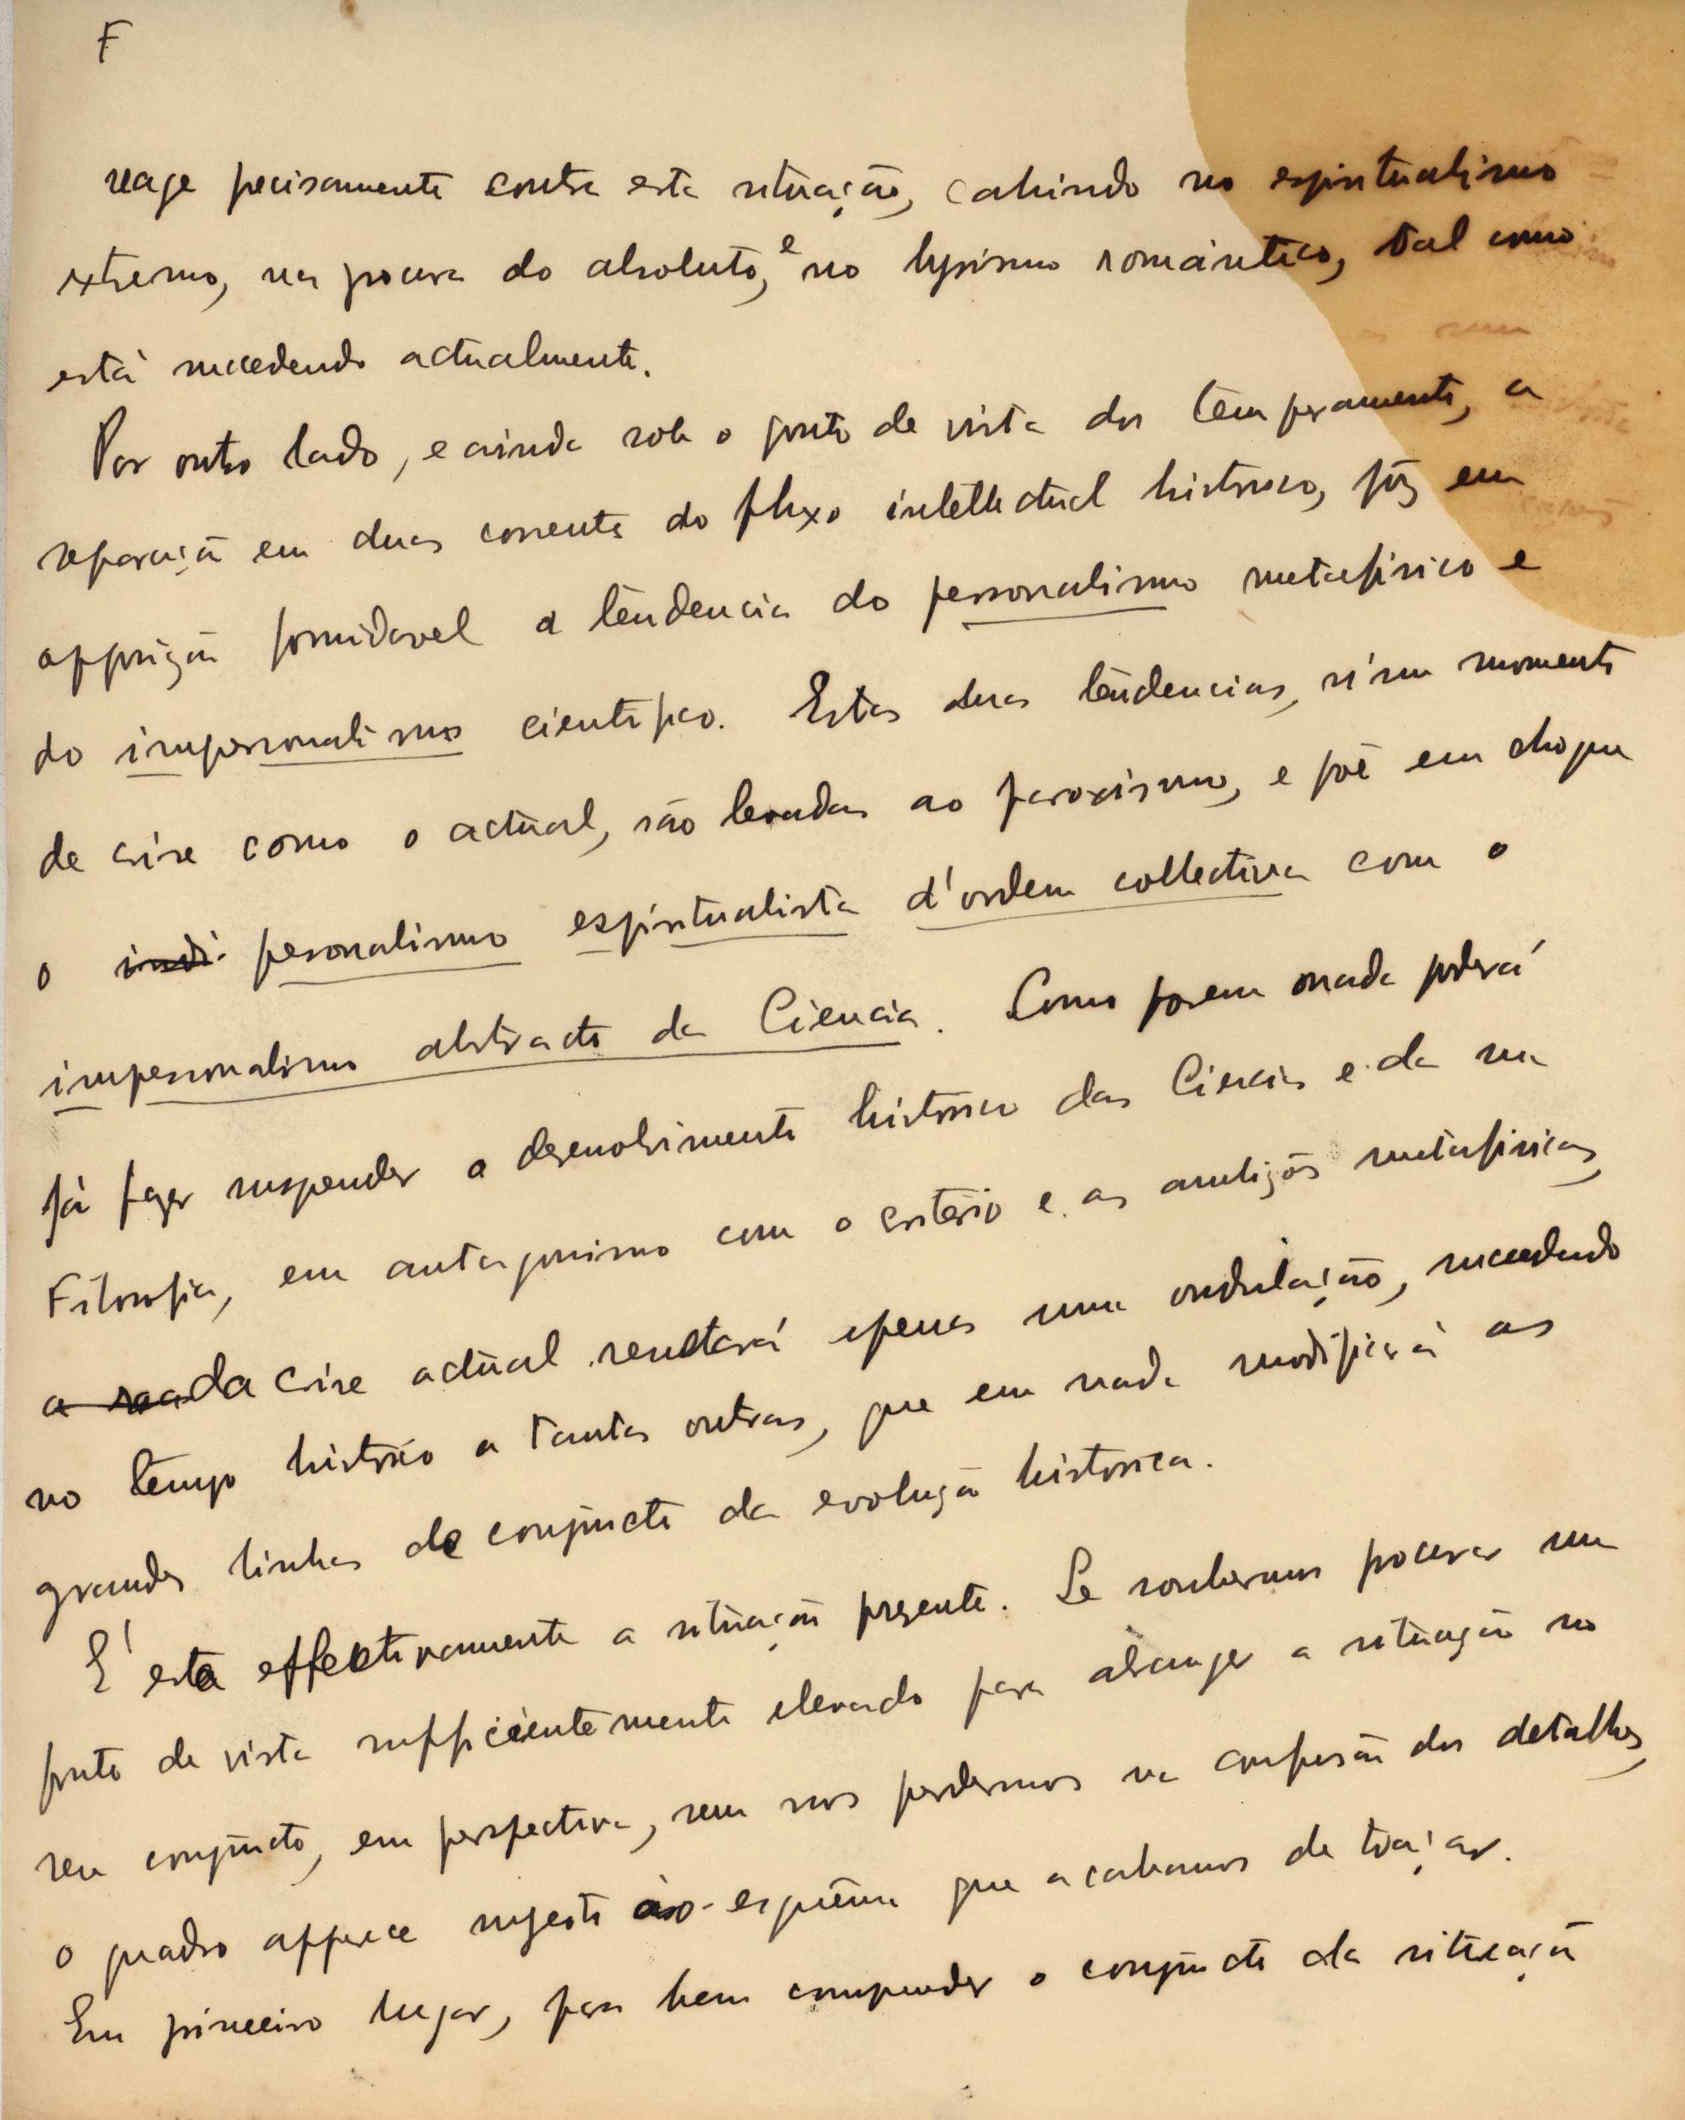 F
reage precisamente contra esta situação, cahindo no espiritualismo
extremo, na procura do absoluto, e no lyrismo romántico, tal como
está succedendo actualmente.
Por outro lado, e ainda sob o ponto de vista dos temperamentos, a
separação em duas correntes do fluxo intellectual historico, põz em
opposição formidavel a tendencia do personalismo metafisico e
do impersonalismo cientifico. Estas duas tendencias, n'um momento
de crise como o actual, são levadas ao paroxismo, e põe em choque
o indi personalismo espiritualista d'ordem collectiva com o
impersonalismo abstracto da Ciencia. Como porem nada poderá
já fazer suspender o desenolvimento historico das Ciencias e da sua
Filosofia, em antagonismo com o critério e as ambições metafisicas,
a nada da crise actual resultará apenas uma ondulação, succedendo
no tempo historico a tantas outras, que em nada modificará as
grandes linhas de conjuncto da evolução historica.
É esta effectivamente a situação presente. Se soubermos procurar um
ponto de vista sufficientemente elevado para abranger a situação no
seu conjuncto, em perspectiva, sem nos perdermos na confusão dos detalhes,
o quadro apparece sujeito ao esquêma que acabamos de traçar.
Em primeiro lugar, para bem comprender o conjuncto da situação